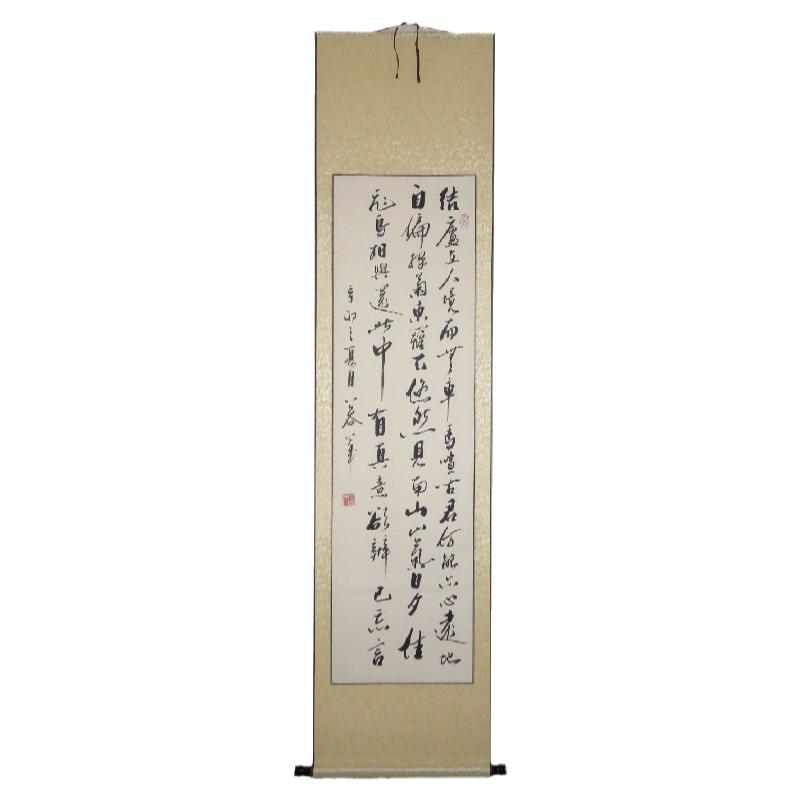 結廬在人境而無車馬喧問君何能爾心遠地
自偏採菊東籬下悠然見南山山氣日夕佳
飛鳥相與還此中有真意欲辨已忘言
辛卯之夏月